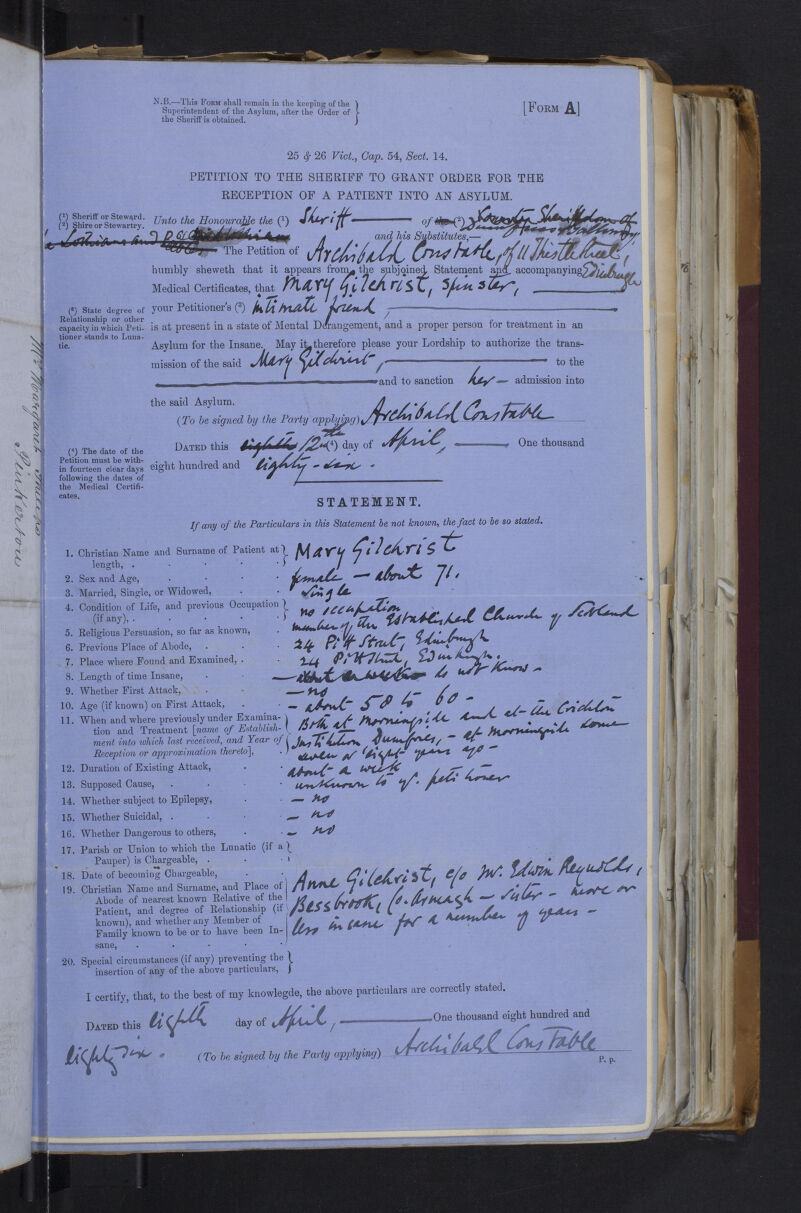 N.B.—This Form shall remain in the keeping of the
Superintendent of the Asylum, after the Order of
the Sheriff is obtained.
[Form A]
25 & 26 Vict., Cap. 54, Sect. 14.
PETITION TO THE SHERIFF TO GRANT ORDER FOR THE
RECEPTION OF A PATIENT INTO AN ASYLUM.
(1) Sheriff or Steward.
(2) Shire or Stewartry.
Unto the Honourable the (1) Sheriff of the (2) Sheriffdom of
Lothians and and his Substitutes,—
The Petition of Archibald Constable, of 11 Thistle Street, Edinburgh
humbly sheweth that it appears from the subjoined Statement and accompanying
Medical Certificates, that Mary Gilchrist, Spinster,
(3) State degree of
Relationship or other
capacity in which Peti-
tioner stands to Luna-
tic.
your Petitioner's (3) intimate friend
is at present in a state of Mental Derangement, and a proper person for treatment in an
Asylum for the Insane. May it therefore please your Lordship to authorize the trans-
mission of the said Mary Gilchrist, to the
and to sanction her admission into
the said Asylum.
(To be signed by the Party applying) Archibald Constable
(4) The date of the
Petition must be with-
in fourteen clear days
following the dates of
the Medical Certifi-
cates.
Dated this eighth 12th (4) day of April, One thousand
eight hundred and eighty-six.
STATEMENT.
If any of the Particulars in this Statement be not known, the fact to be so stated.
1. Christian Name and Surname of Patient at length, . Mary Gilchrist
2. Sex and Age, female — about 71.
3. Married, Single, or Widowed, Single
4. Condition of Life, and previous Occupation (if any), . no occupation
5. Religious Persuasion, so far as known, member of the Established Church of Scotland
6. Previous Place of Abode, . 24 Pitt Street, Edinburgh
7. Place where Found and Examined, . 24 Pitt Street, Edinburgh.
8. Length of time Insane, do not know -
9. Whether First Attack, — no
10. Age (if known) on First Attack, - about 58 to 60 -
11. When and where previously under Examina-
tion and Treatment [name of Establish-
ment into which last received, and Year of
Reception or approximation thereto],
Both at Morningside and at the Crichton
Institution Dumfries, - at Morningside some
seven or eight years ago -
12. Duration of Existing Attack, about a week
13. Supposed Cause, . unknown to yr. petitioner
14. Whether subject to Epilepsy, — no
15. Whether Suicidal, . — no
16. Whether Dangerous to others, — no
17. Parish or Union to which the Lunatic (if a
Pauper) is Chargeable, .
18. Date of becoming Chargeable,
19. Christian Name and Surname, and Place of
Abode of nearest known Relative of the
Patient, and degree of Relationship (if
known), and whether any Member of
Family known to be or to have been In-
sane,
Anne Gilchrist, c/o Mr. Edwin Reynolds,
Bessbrook, Co. Armagh — Sister - more or
less insane for a number of years -
20. Special circumstances (if any) preventing the
insertion of any of the above particulars,
I certify, that, to the best of my knowlegde, the above particulars are correctly stated.
Dated this eighth day of April, One thousand eight hundred and
eighty six. (To be signed by the Party applying) Archibald Constable
P. p.
Pinkerton